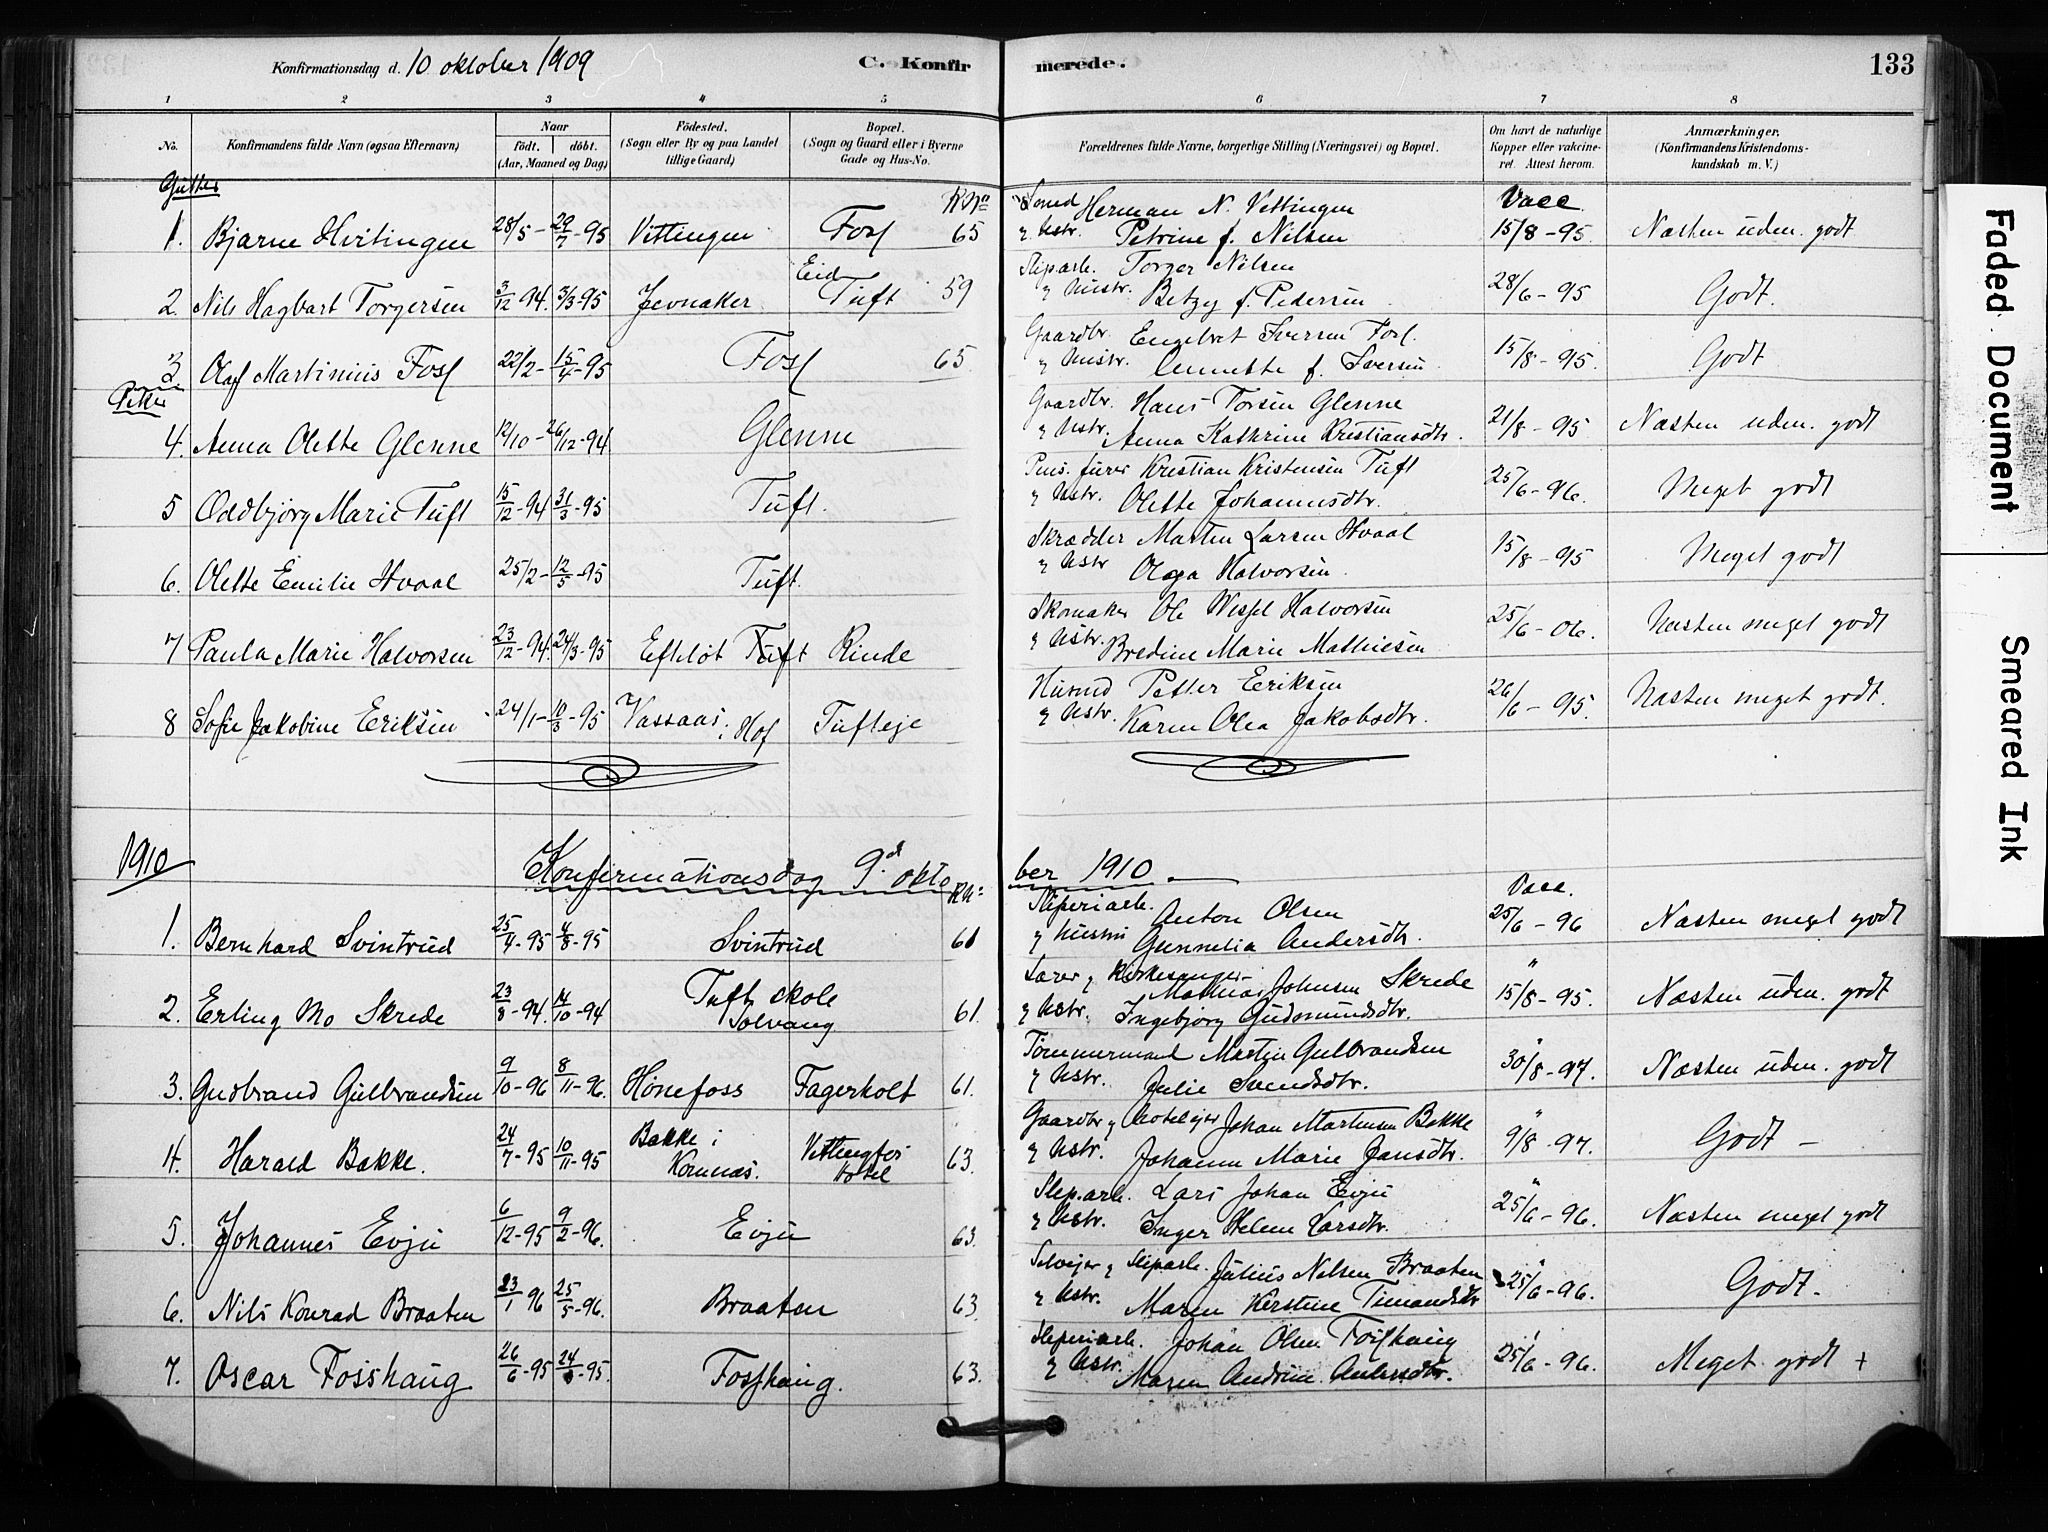 Konfirmationsdag d. 10 oktober 1909 C. Konfirmerede. 133
1 2 3 4 5 6 7 8
No. Konfirmandens fulde Navn (ogsaa Efternavn) Naar födt. döbt. (Aar, Maaned og Dag) Födested. (Sogn eller By og paa Landet tillige Gaard) Bopæl. (Sogn og Gaard eller i Byerne Gade og Hus-No. Forældrenes fulde Navne, borgerlige Stilling (Næringsvei) og Bopæl. Om havt de naturlige Kopper eller vakcineret. Attest herom. Anmærkninger. (Konfirmandens Kristendomskundskab m. V.)
Gutter Vacc.
1. Bjarne Hvitingen 28/5 - 29/7 - 95 Vittingen Foss 65 Herman N. Vittingen 15/8 - 95 Næsten uden. godt
& Hstr. Petrine f. Nilsen
2. Nils Hagbart Torgersen 3/12 - 94. 3/3 - 95 Jevnaker Eid Tuft 59 Sliparb. Torger Nilsen 28/6 - 95 Godt.
& Hustr. Betzy f. Pedersen
3 Olaf Martinius Foss 22/2 - 15/4 - 95 Foss 65 Gaardbr. Engebret Iversen Foss. 15/8 - 95 Godt
& Hustr. Annette f. Iversen
Piker
4. Anna Olette Glenne 12/10 - 26/12 - 94 Glenne Gaardbr. Hans Torsen Glenne 21/8 - 95 Næsten uden. godt
& Hstr. Anna Kathrine Kristiansdtr.
5 Oddbjörg Marie Tuft 15/12 - 94 31/3 - 95 Tuft. Kristian Kristensen Tuft 25/6 - 96. Meget godt
& Hstr. Olette Johannesdtr.
6. Olette Emilie Hvaal 25/2 - 12/5 - 95 Tuft. Skrædder Martin Larsen Hvaal 15/8 - 95 Meget godt
& Hstr Olga Halvorsen
7 Paula Marie Halvorsen 23/12 - 94. 24/3 - 95 Efteløt Tuft Rinde Skomaker Ole Wessel Halvorsen 25/6 - 06. Næsten meget godt
& Hstr. Bredine Marie Mathiesen
8 Sofie Jakobine Eriksen 24/1 - 10/3 - 95 Vassaas i Hof Tufteje Husmd Petter Eriksen 26/6 - 95. Næsten meget godt.
& Hstr. Karen Olea Jakobsdtr.
1910 Konfirmationsdag 9.d oktober 1910. Vacc.
1. Bernhard Svintrud 25/4 - 95 4/8 - 95 Svintrud 61 Sliperiarb. Anton Olsen 25/6 - 96 Næsten meget godt
& Hustru Gunnelia Andersdtr.
2. Erling Mo Skrede 23/8 - 94. 14/10 - 94 Tuft skole Solvang 61. Lærer & Kirkesanger Mathias Johnsen Skrede " 15/8 - 95. Næsten uden. godt
& Hstr. Ingebjörg Gudmundsdtr.
3. Gudbrand Gulbrandsen 9/10 - 96 8/11 - 96. Hønefoss Fagerholt 61. Tømmermand Martin Gulbrandsen " 30/8 - 97. Næsten uden. godt
& Hstr. Julie Svendsdtr.
4. Harald Bakke. 24/7 - 95 10/11 - 95 Bakke i Komnæs. Vittingfos Hotel 63. Gaardbr & hotelejer Johan Martinsen Bakke " 9/8 - 97. Godt -
& Hstr. Johanne Marie Jansdtr.
5. Johannes Evju 6/12 - 95 9/2 - 96. Evju 63. Sliparb. Lars Johan Evju " 25/6 - 96. Næsten meget godt
& Hstr. Inger Helene Larsdtr.
6. Nils Konrad Braaten 23/1 96 25/5 - 96. Braaten 63. Selvejer & Sliparb. Julius Nilsen Braaten " 25/6 - 96. Godt.
& Hstr. Maren Kirstine
7. Oscar Fosshaug 26/6 - 95 - 95. Fosshaug. 63. Sliperiarb. Johan Olsen Fosshaug 25/6 - 96. Meget godt +
& Hstr. Maren Andrine Andersdtr.
Faded Document
Smeared Ink